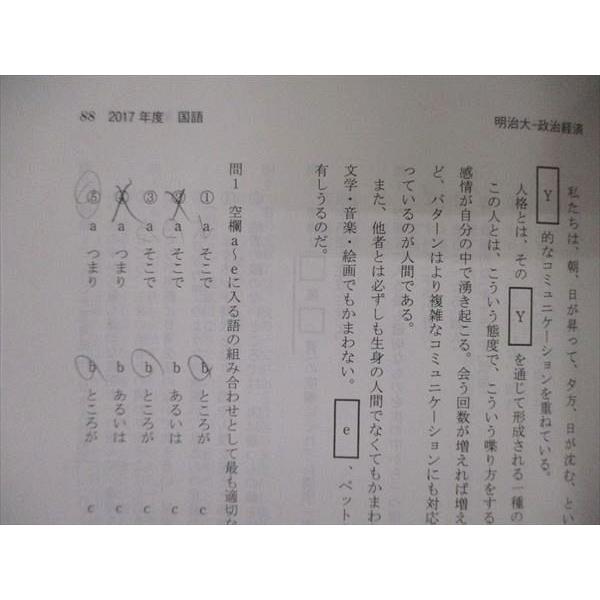 88 2017年度 国語
明治大-政治経済
私たちは、朝、日が昇って、夕方、日が沈む、とい
Y 的なコミュニケーションを重ねている。
人格とは、その Y を通じて形成される一種の
この人とは、こういう態度で、こういう喋り方をする
感情が自分の中で湧き起こる。会う回数が増えれば増え
ど、パターンはより複雑なコミュニケーションにも対応
っているのが人間である。
また、他者とは必ずしも生身の人間でなくてもかまわ
文学・音楽・絵画でもかまわない。 e 、ペット
有しうるのだ。
問1 空欄a～eに入る語の組み合わせとして最も適切な
① a そこで b ところが c
② a そこで b あるいは c
③ a そこで b ところが c
④ a つまり b あるいは c
⑤ a つまり b ところが c